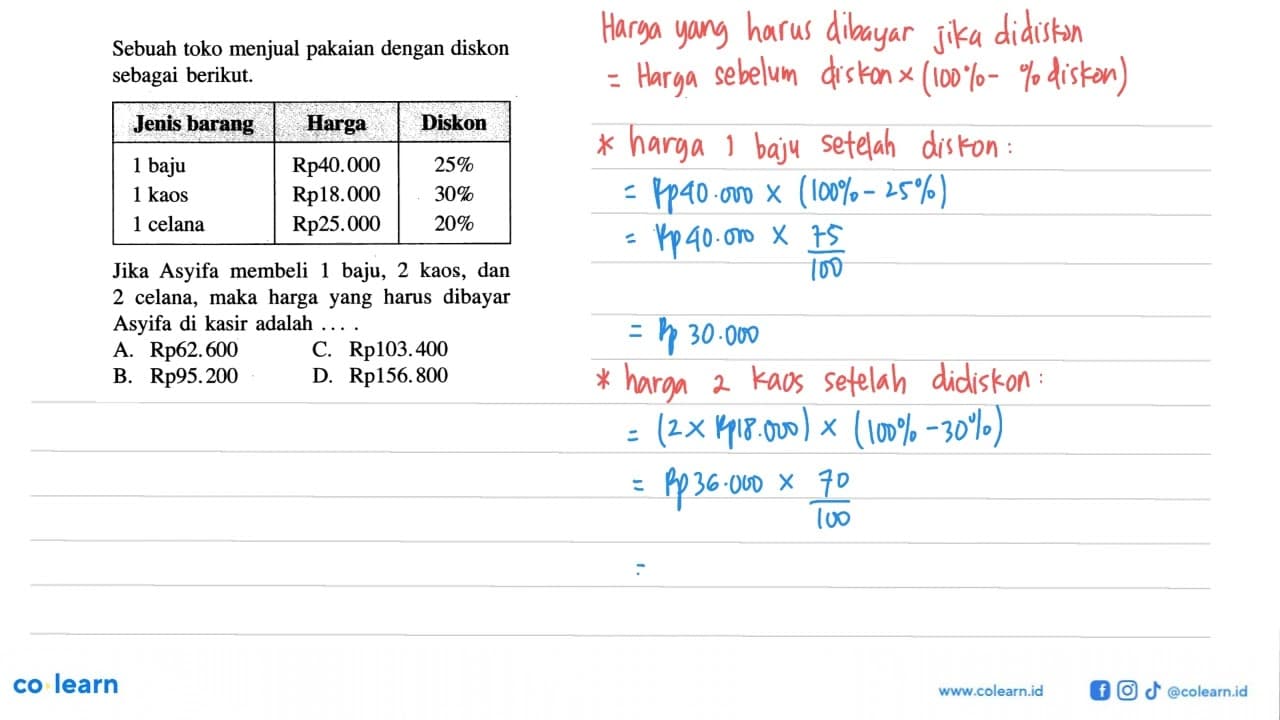 Sebuah toko menjual pakaian dengan diskon
sebagai berikut.
Jenis barang Harga Diskon
1 baju Rp40.000 25%
1 kaos Rp18.000 30%
1 celana Rp25.000 20%
Jika Asyifa membeli 1 baju, 2 kaos, dan
2 celana, maka harga yang harus dibayar
Asyifa di kasir adalah ....
A. Rp62.600 C. Rp103.400
B. Rp95.200 D. Rp156.800
Harga yang harus dibayar jika didiskon
= Harga sebelum diskon × (100% - % diskon)
* harga 1 baju setelah diskon :
= Rp40.000 × (100% - 25%)
= Rp40.000 × 75/100
= Rp 30.000
* harga 2 kaos setelah didiskon :
= (2 × Rp18.000) × (100% - 30%)
= Rp36.000 × 70/100
=
co learn
www.colearn.id @colearn.id